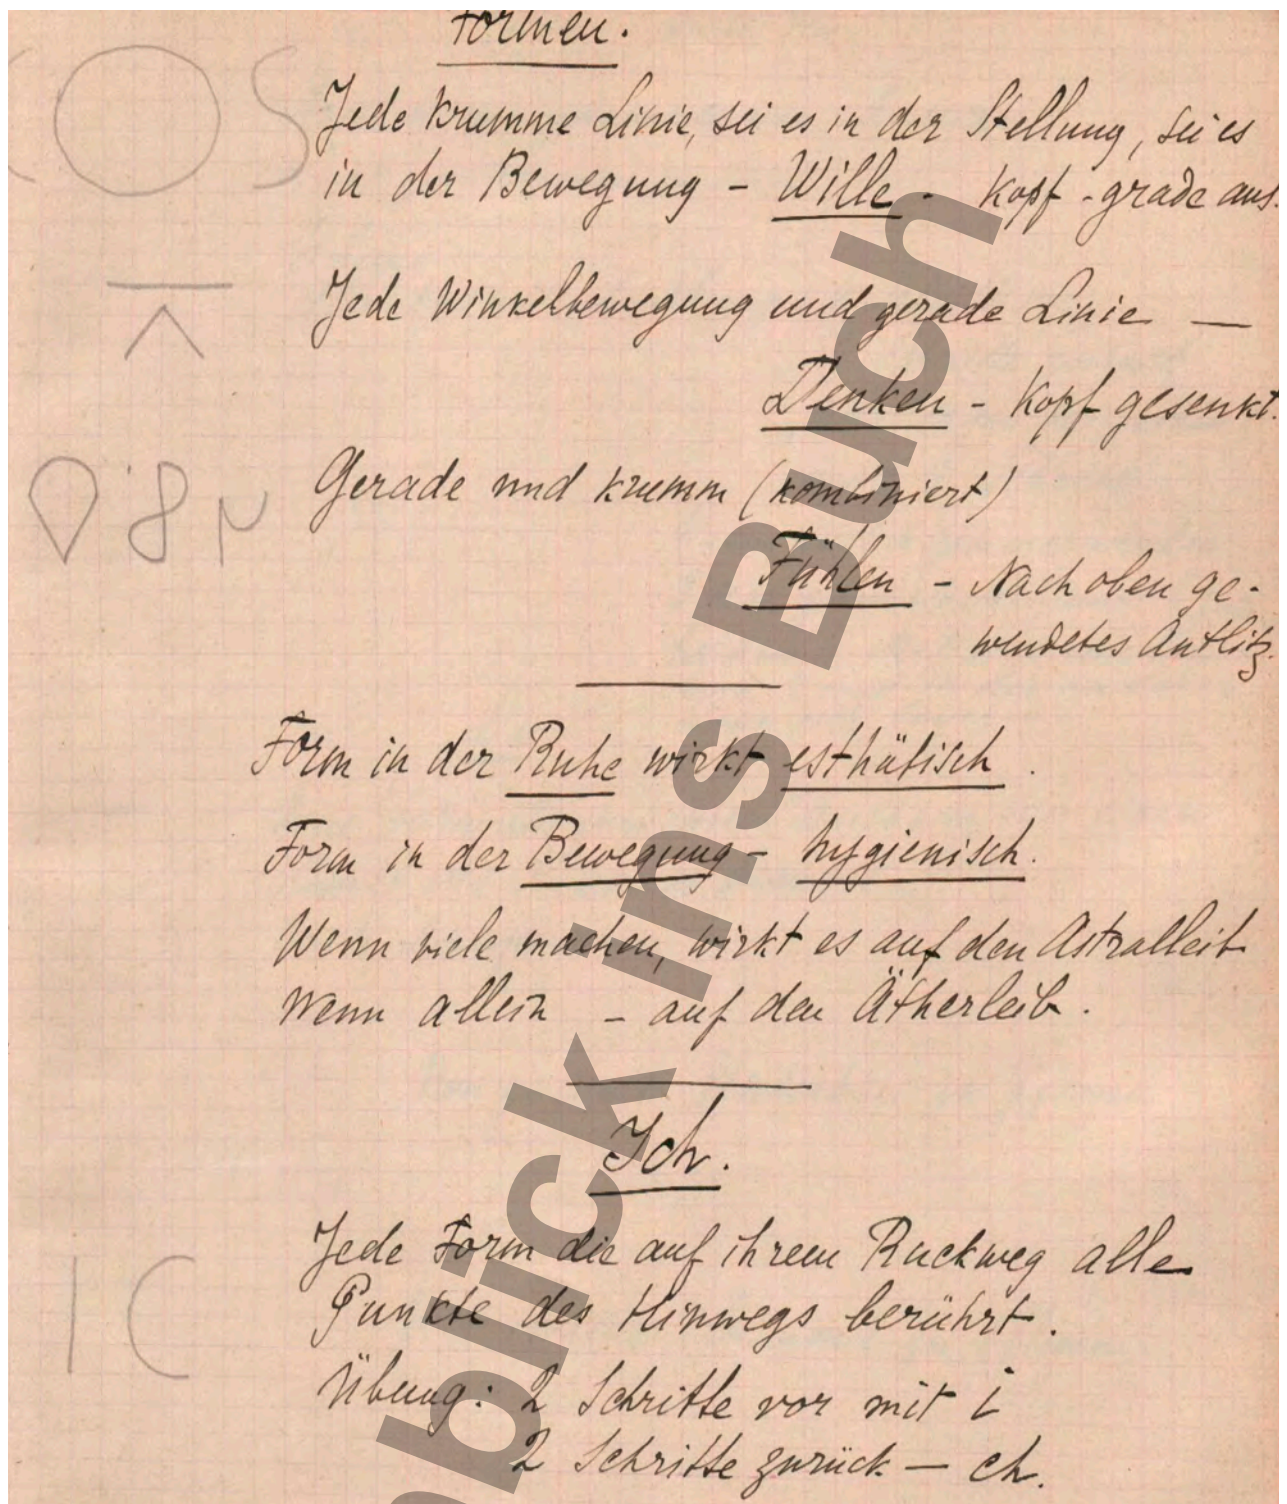 Formen.
Jede krumme Linie, sei es in der Stellung, sei es
in der Bewegung - Wille - Kopf - grade aus.
Jede Winkelbewegung und gerade Linie —
Denken - Kopf gesenkt.
Gerade und krumm (kombiniert)
Fühlen - Nach oben ge-
wendetes Antlitz.
Form in der Ruhe wirkt esthätisch.
Form in der Bewegung - hygienisch.
Wenn viele machen, wirkt es auf den Astralleib
Wenn allein - auf den Ätherleib.
Ich.
Jede Form die auf ihrem Ruckweg alle
Punkte des Hinwegs berührt.
Übung: 2 Schritte vor mit i
2 Schritte zurück — ch.
blick ins Buch